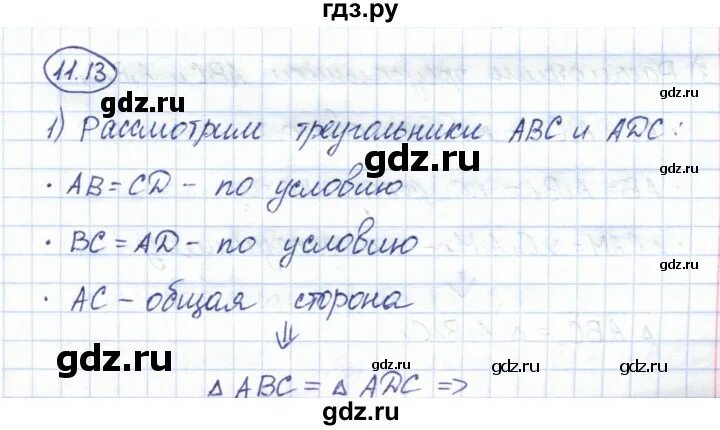 гдз.ру
11.13
gdz.ru
gdz.ru
1) Рассмотрим треугольники ABC и ADC:
gdz.ru
• AB = CD - по условию
gdz.ru
• BC = AD - по условию
gdz.ru
gdz.ru
• AC - общая сторона
⇓
gdz.ru
gdz.ru
gdz.ru
gdz.ru
△ ABC = △ ADC =>
gdz.ru